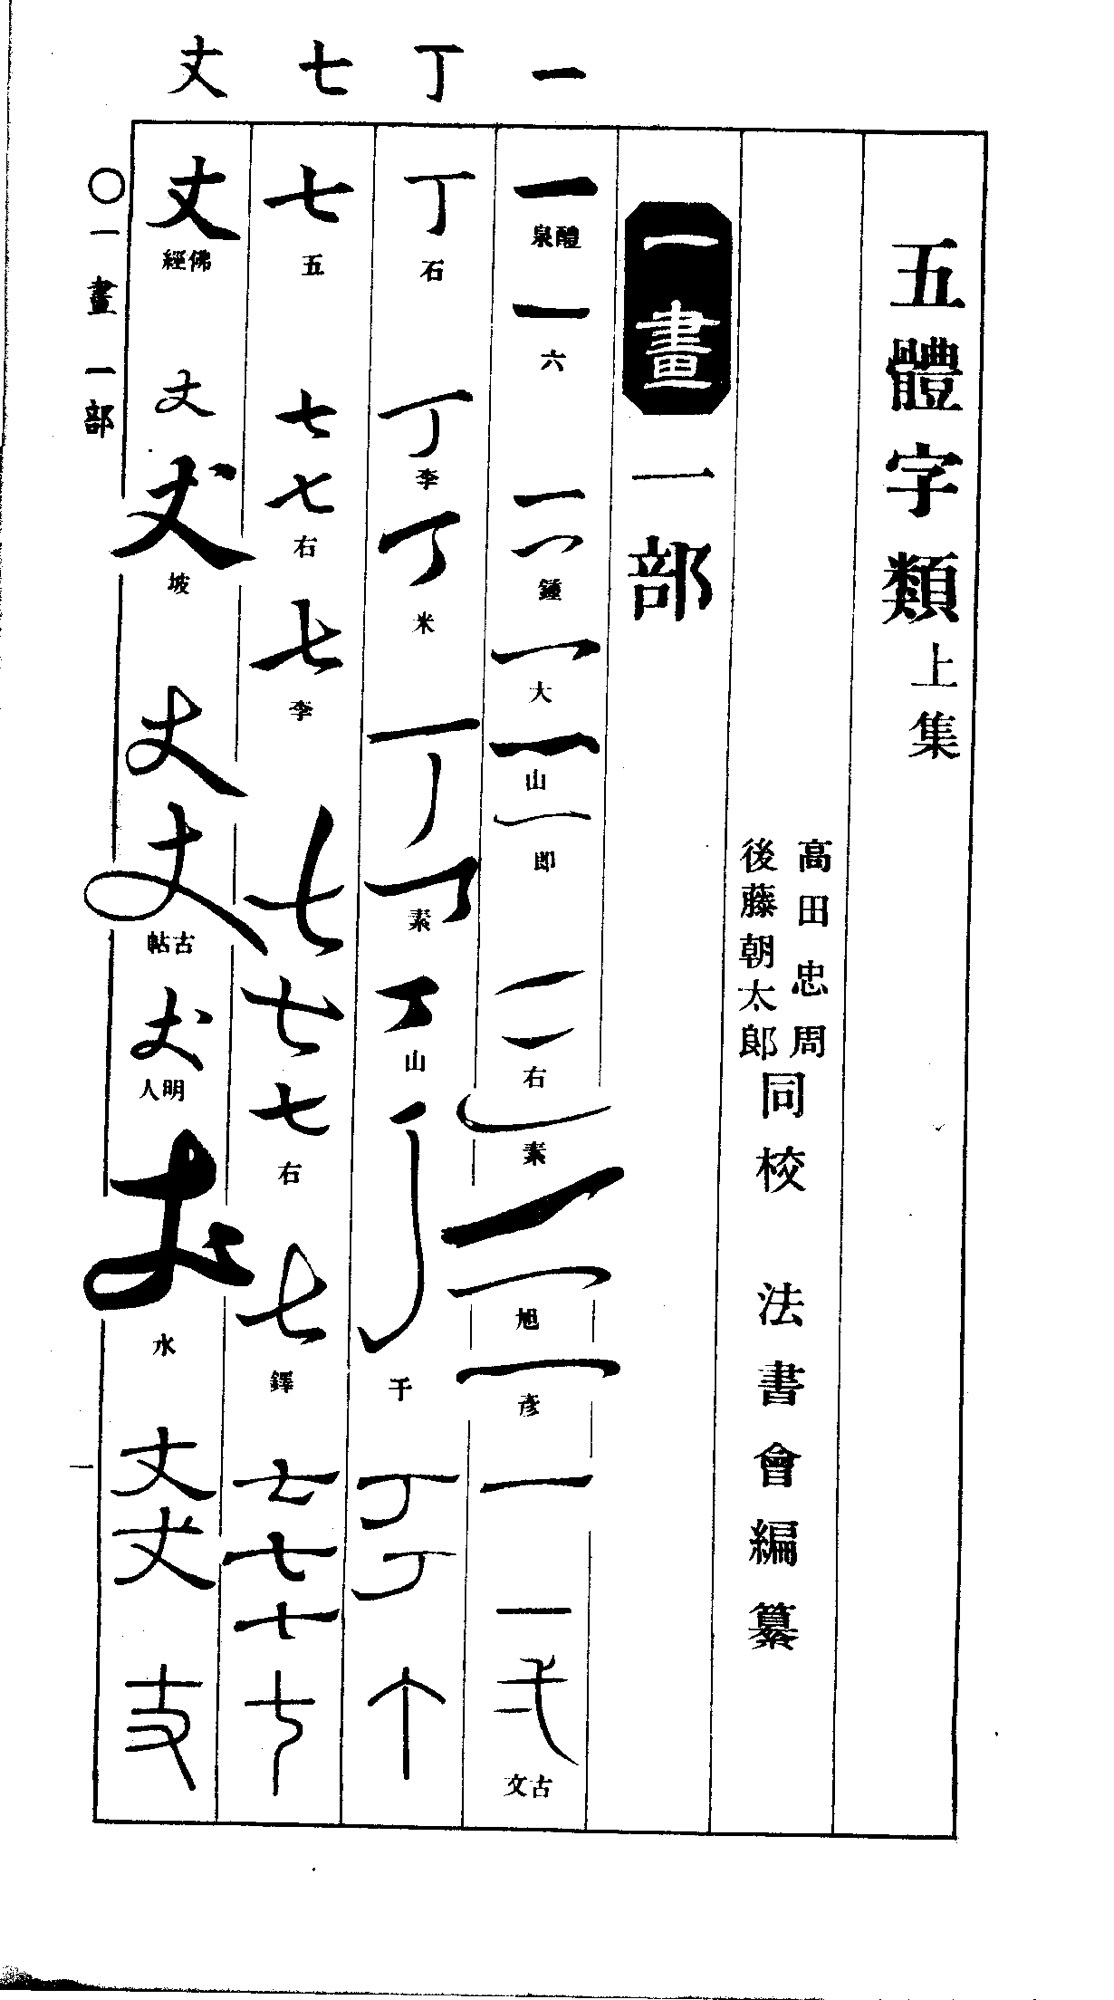 一 丁 七 丈
五體字類上集
高田忠周
後藤朝太郎
同校 法書會編纂
一畫
一部
一 醴泉 一 六 一 一 鍾 一 大 一 山 一 即 一 一 右 一 素 一 一 旭 一 彥 一 一 弌 古文
丁 石 丁 李 丁 米 丁 丁 素 丁 山 丁 千 丁 丁 丁
七 五 七 七 右 七 李 七 七 七 右 七 鐸 七 七 七 七
丈 佛經 丈 丈 坡 丈 丈 古帖 丈 明人 丈 水 丈 丈 丈
〇一畫 一部
一